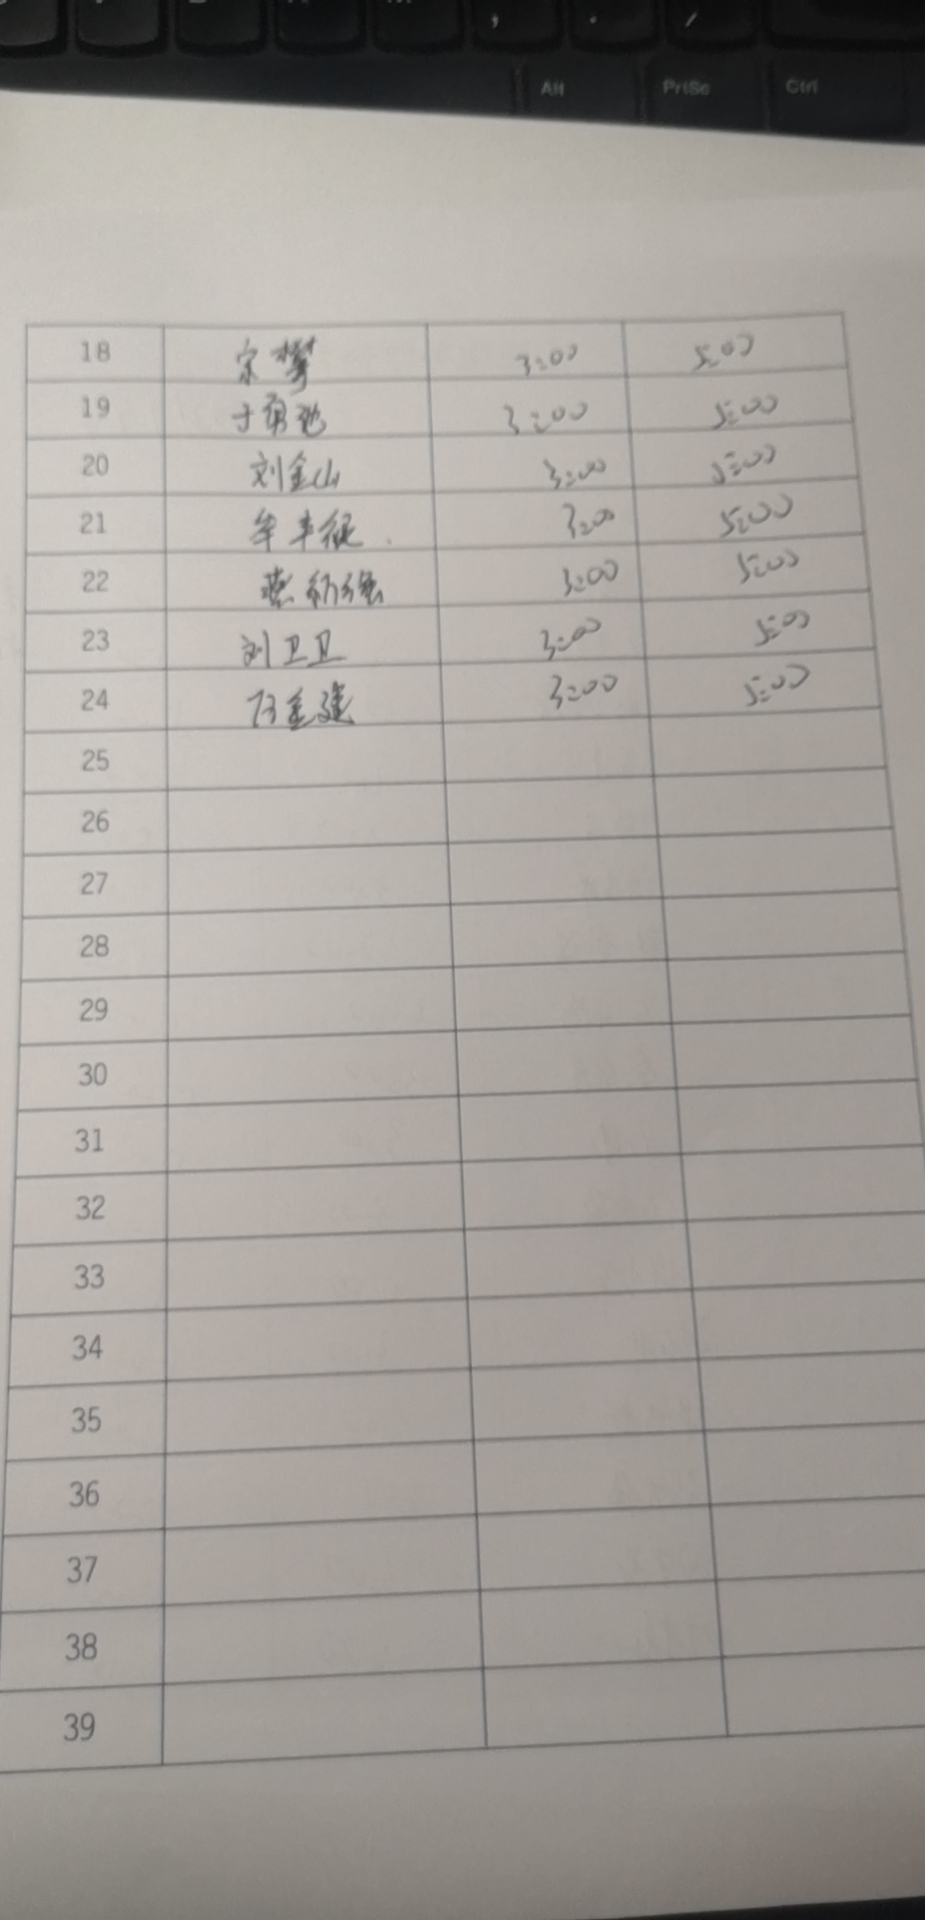 Alt PrtSc Ctrl
18 宋攀 3:00 5:00
19 于勇 3:00 5:00
20 刘金山 3:00 5:00
21 牟丰 3:00 5:00
22 3:00 5:00
23 刘卫卫 3:00 5:00
24 3:00 5:00
25
26
27
28
29
30
31
32
33
34
35
36
37
38
39